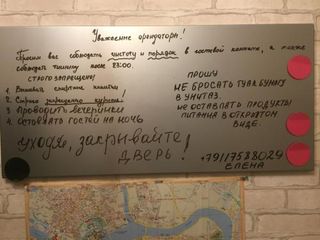 Уважаемые арендаторы!
Просим вас соблюдать чистоту и порядок в гостевой комнате, а также
соблюдать тишину после 23:00.
СТРОГО ЗАПРЕЩЕНО!
1. Распивать спиртные напитки
2. Строго запрещено курить!
3. Проводить вечеринки
4. Оставлять гостей на ночь
уходя, закрывайте
дверь!
ПРОШУ
НЕ БРОСАТЬ ТУАЛ. БУМАГУ
В УНИТАЗ.
НЕ ОСТАВЛЯТЬ ПРОДУКТЫ
ПИТАНИЯ В ОТКРЫТОМ
ВИДЕ.
+79117588029
ЕЛЕНА